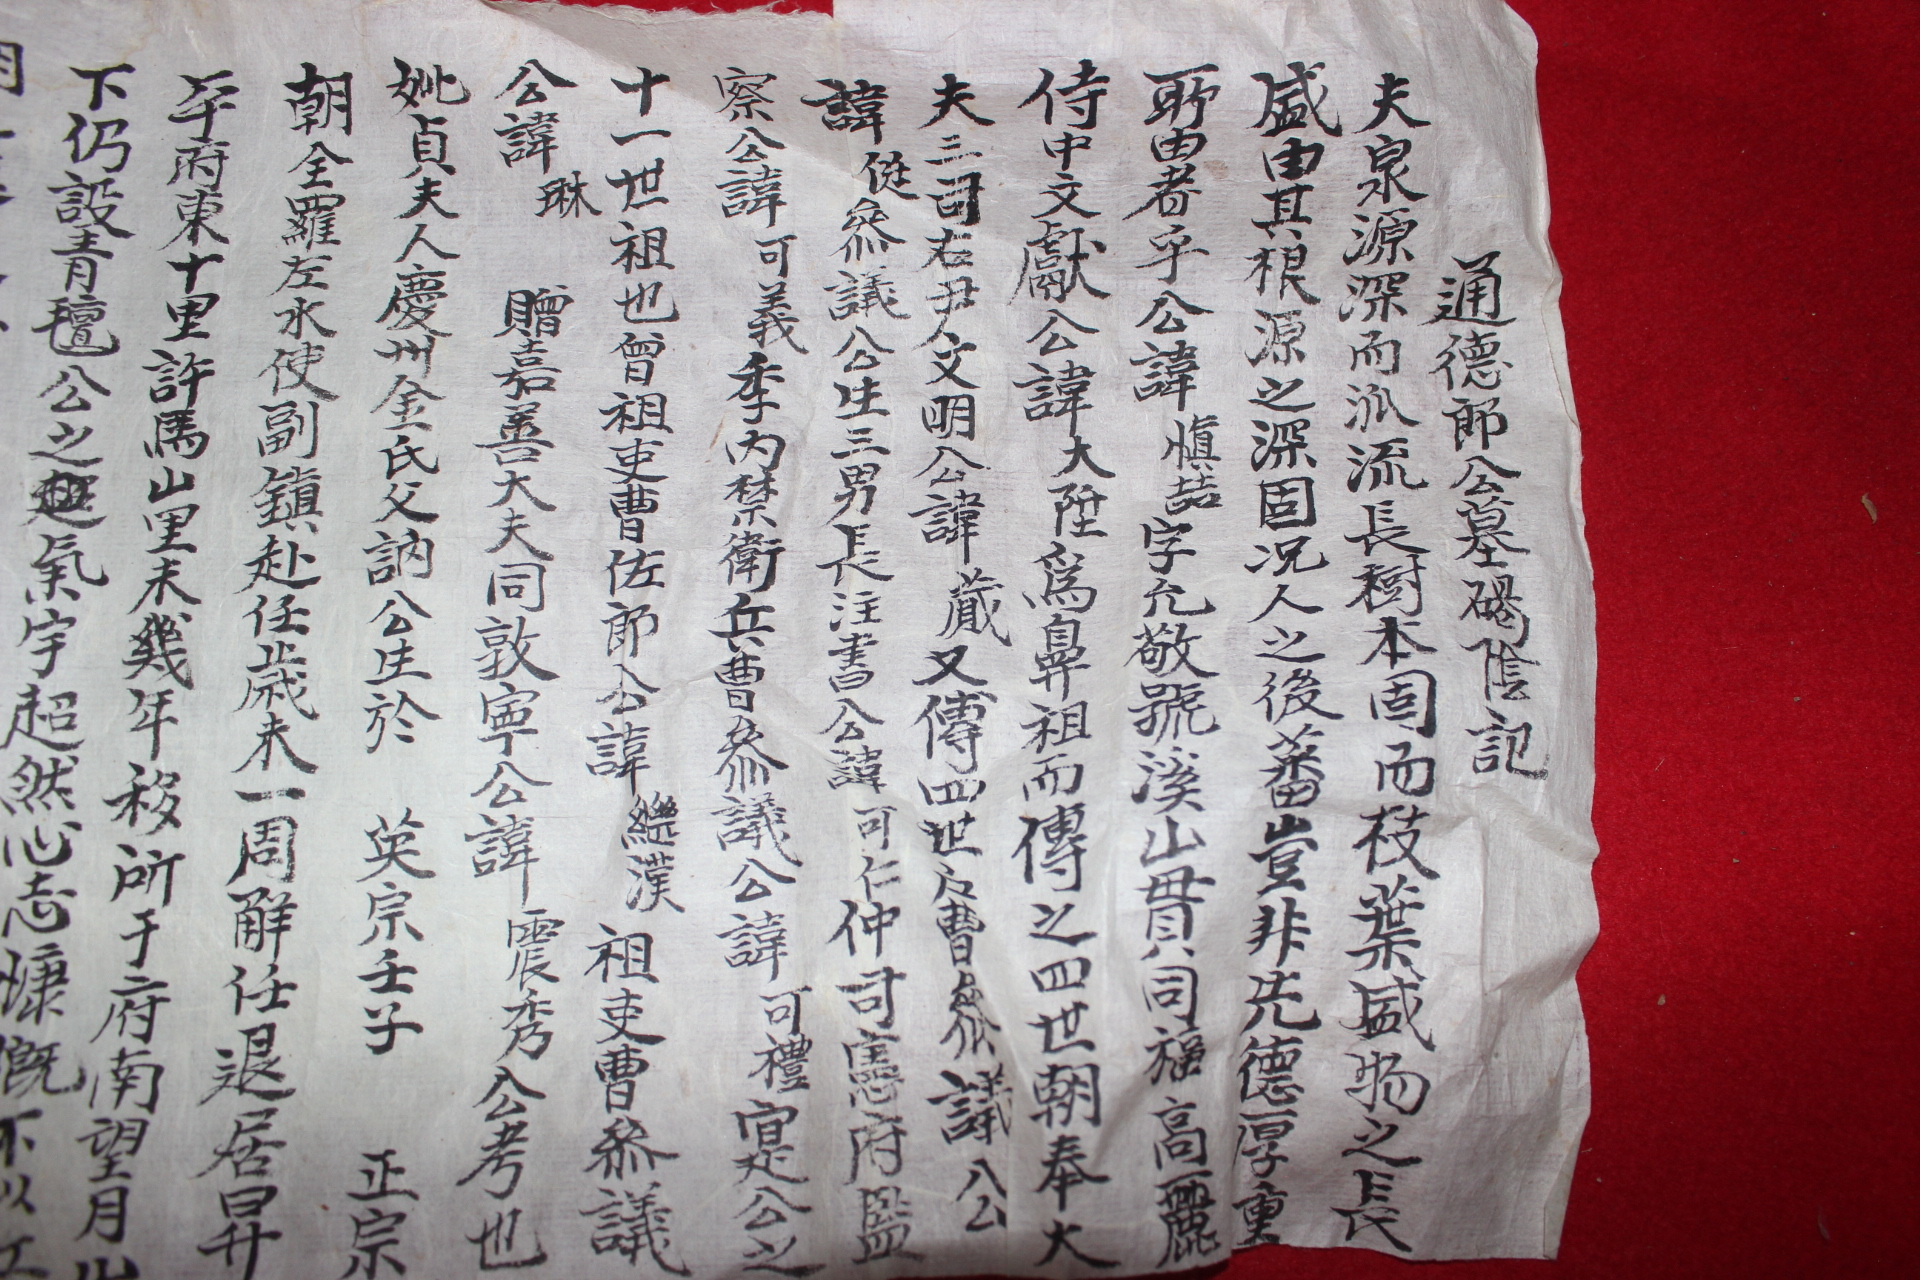 通德郎公墓碣陰記
夫泉源深而派流長樹本固而枝葉盛物之長
盛由其根源之深固况人之後蕃豈非先德厚重
所由者乎公諱愼喆字允敬號溪山貫同福高麗
侍中文獻公諱大陞爲鼻祖而傳之四世朝奉大
夫三司右尹文明公諱蕆又傳四世戶曹參議公
諱從參議公生三男長注書公諱可仁仲司憲府監
察公諱可義季內禁衛兵曹參議公諱可禮寔公之
十一世祖也曾祖吏曹佐郎公諱繼漢祖吏曹參議
公諱琳贈嘉善大夫同敦寧公諱震秀公考也
妣貞夫人慶州金氏父訥公生於英宗壬子正宗
朝全羅左水使副鎮赴任歲未一周解任退居昇
平府東十里許馬山里未幾年移所于府南望月山
下仍設靑氈公之氣宇超然心志慷慨不以